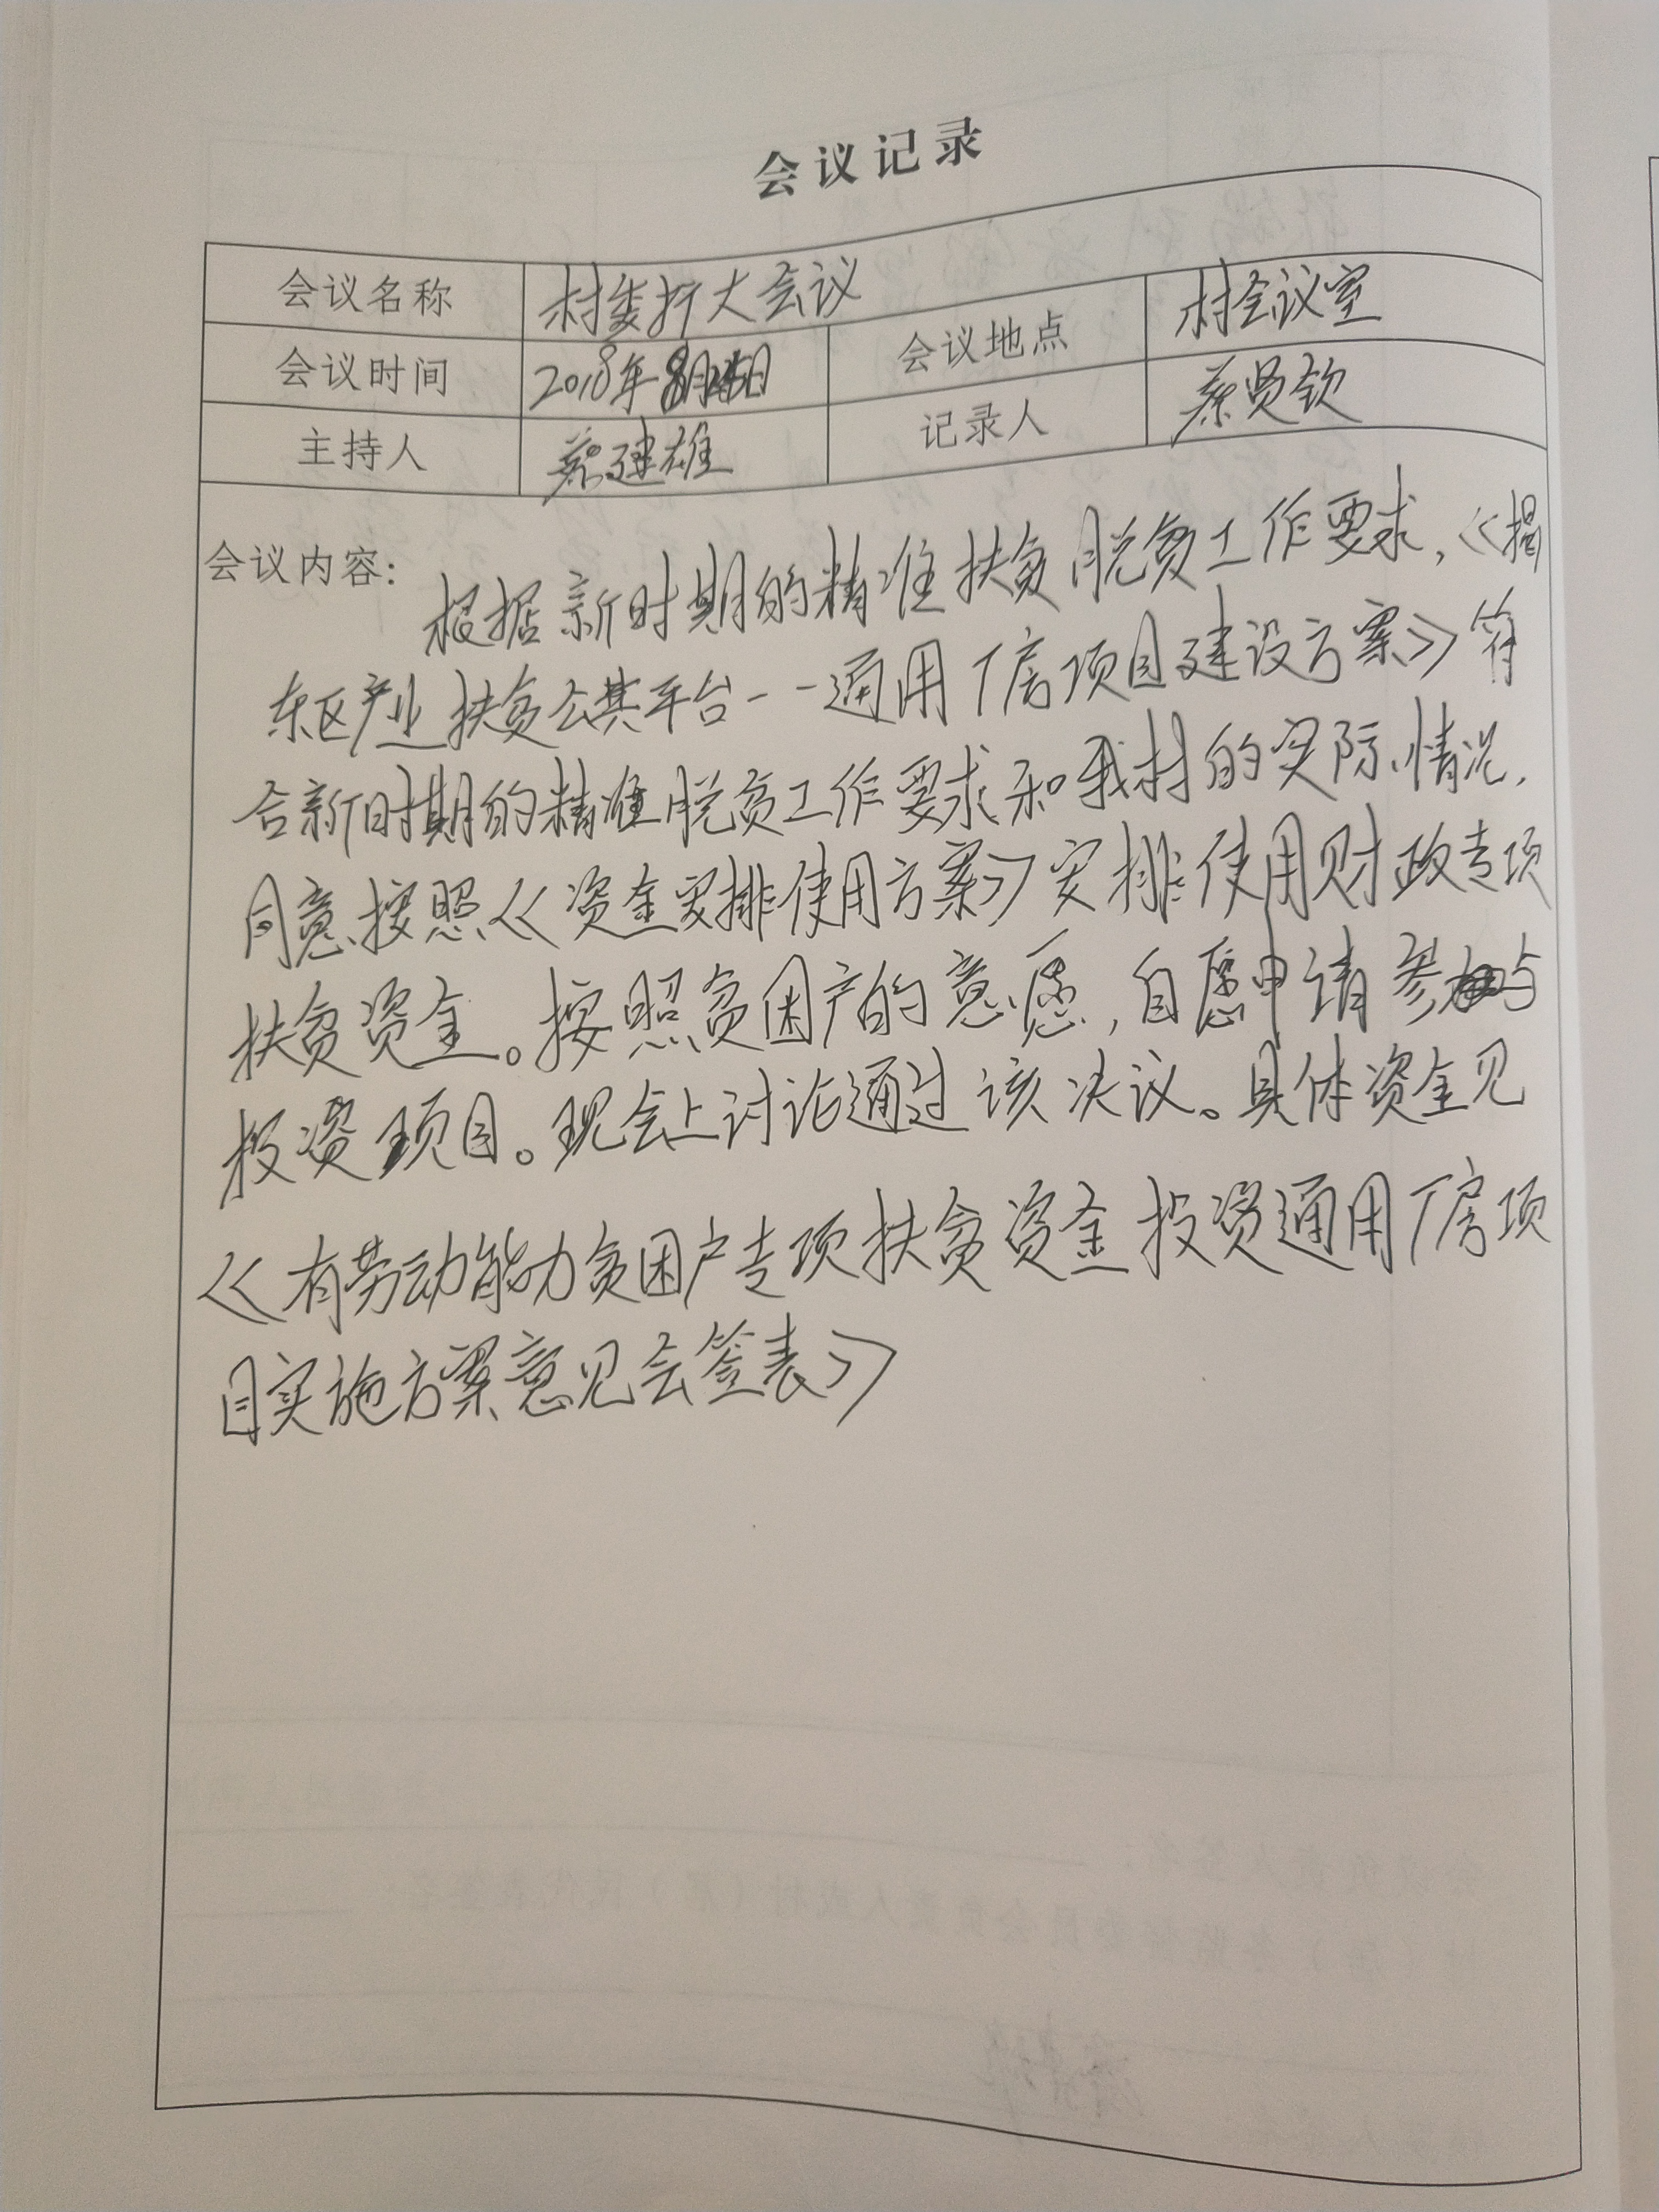 会议记录
会议名称 村委扩大会议
会议地点 村会议室
会议时间 2018年8月日
记录人 蔡贤钦
主持人 蔡建雄
会议内容:
根据新时期的精准扶贫脱贫工作要求,《揭
东区产业扶贫公共平台--通用厂房项目建设方案》符
合新时期的精准脱贫工作要求和我村的实际情况,
同意按照《资金安排使用方案》安排使用财政专项
扶贫资金。按照贫困户的意愿,自愿申请参与
投资项目。现会上讨论通过该决议。具体资金见
《有劳动能力贫困户专项扶贫资金投资通用厂房项
目实施方案意见会签表》